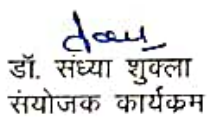 डॉ. संध्या शुक्ला
संयोजक कार्यक्रम